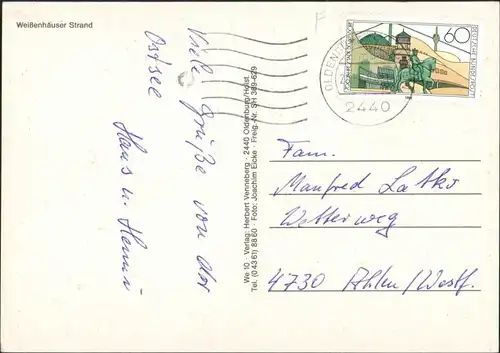 Weißenhäuser Strand
Viele Grüße von der
Ostsee
Hans u. Hanni
We 10 · Verlag: Herbert Venneberg · 2440 Oldenburg/Holst.
Tel. (0 43 61) 88 60 · Foto: Joachim Eicke · Freig.-Nr. SH 389-629
60
DEUTSCHE BUNDESPOST
OLDENBU
2440
Fam.
Manfred Latko
Wetterweg
4730 Ahlen/Westf.